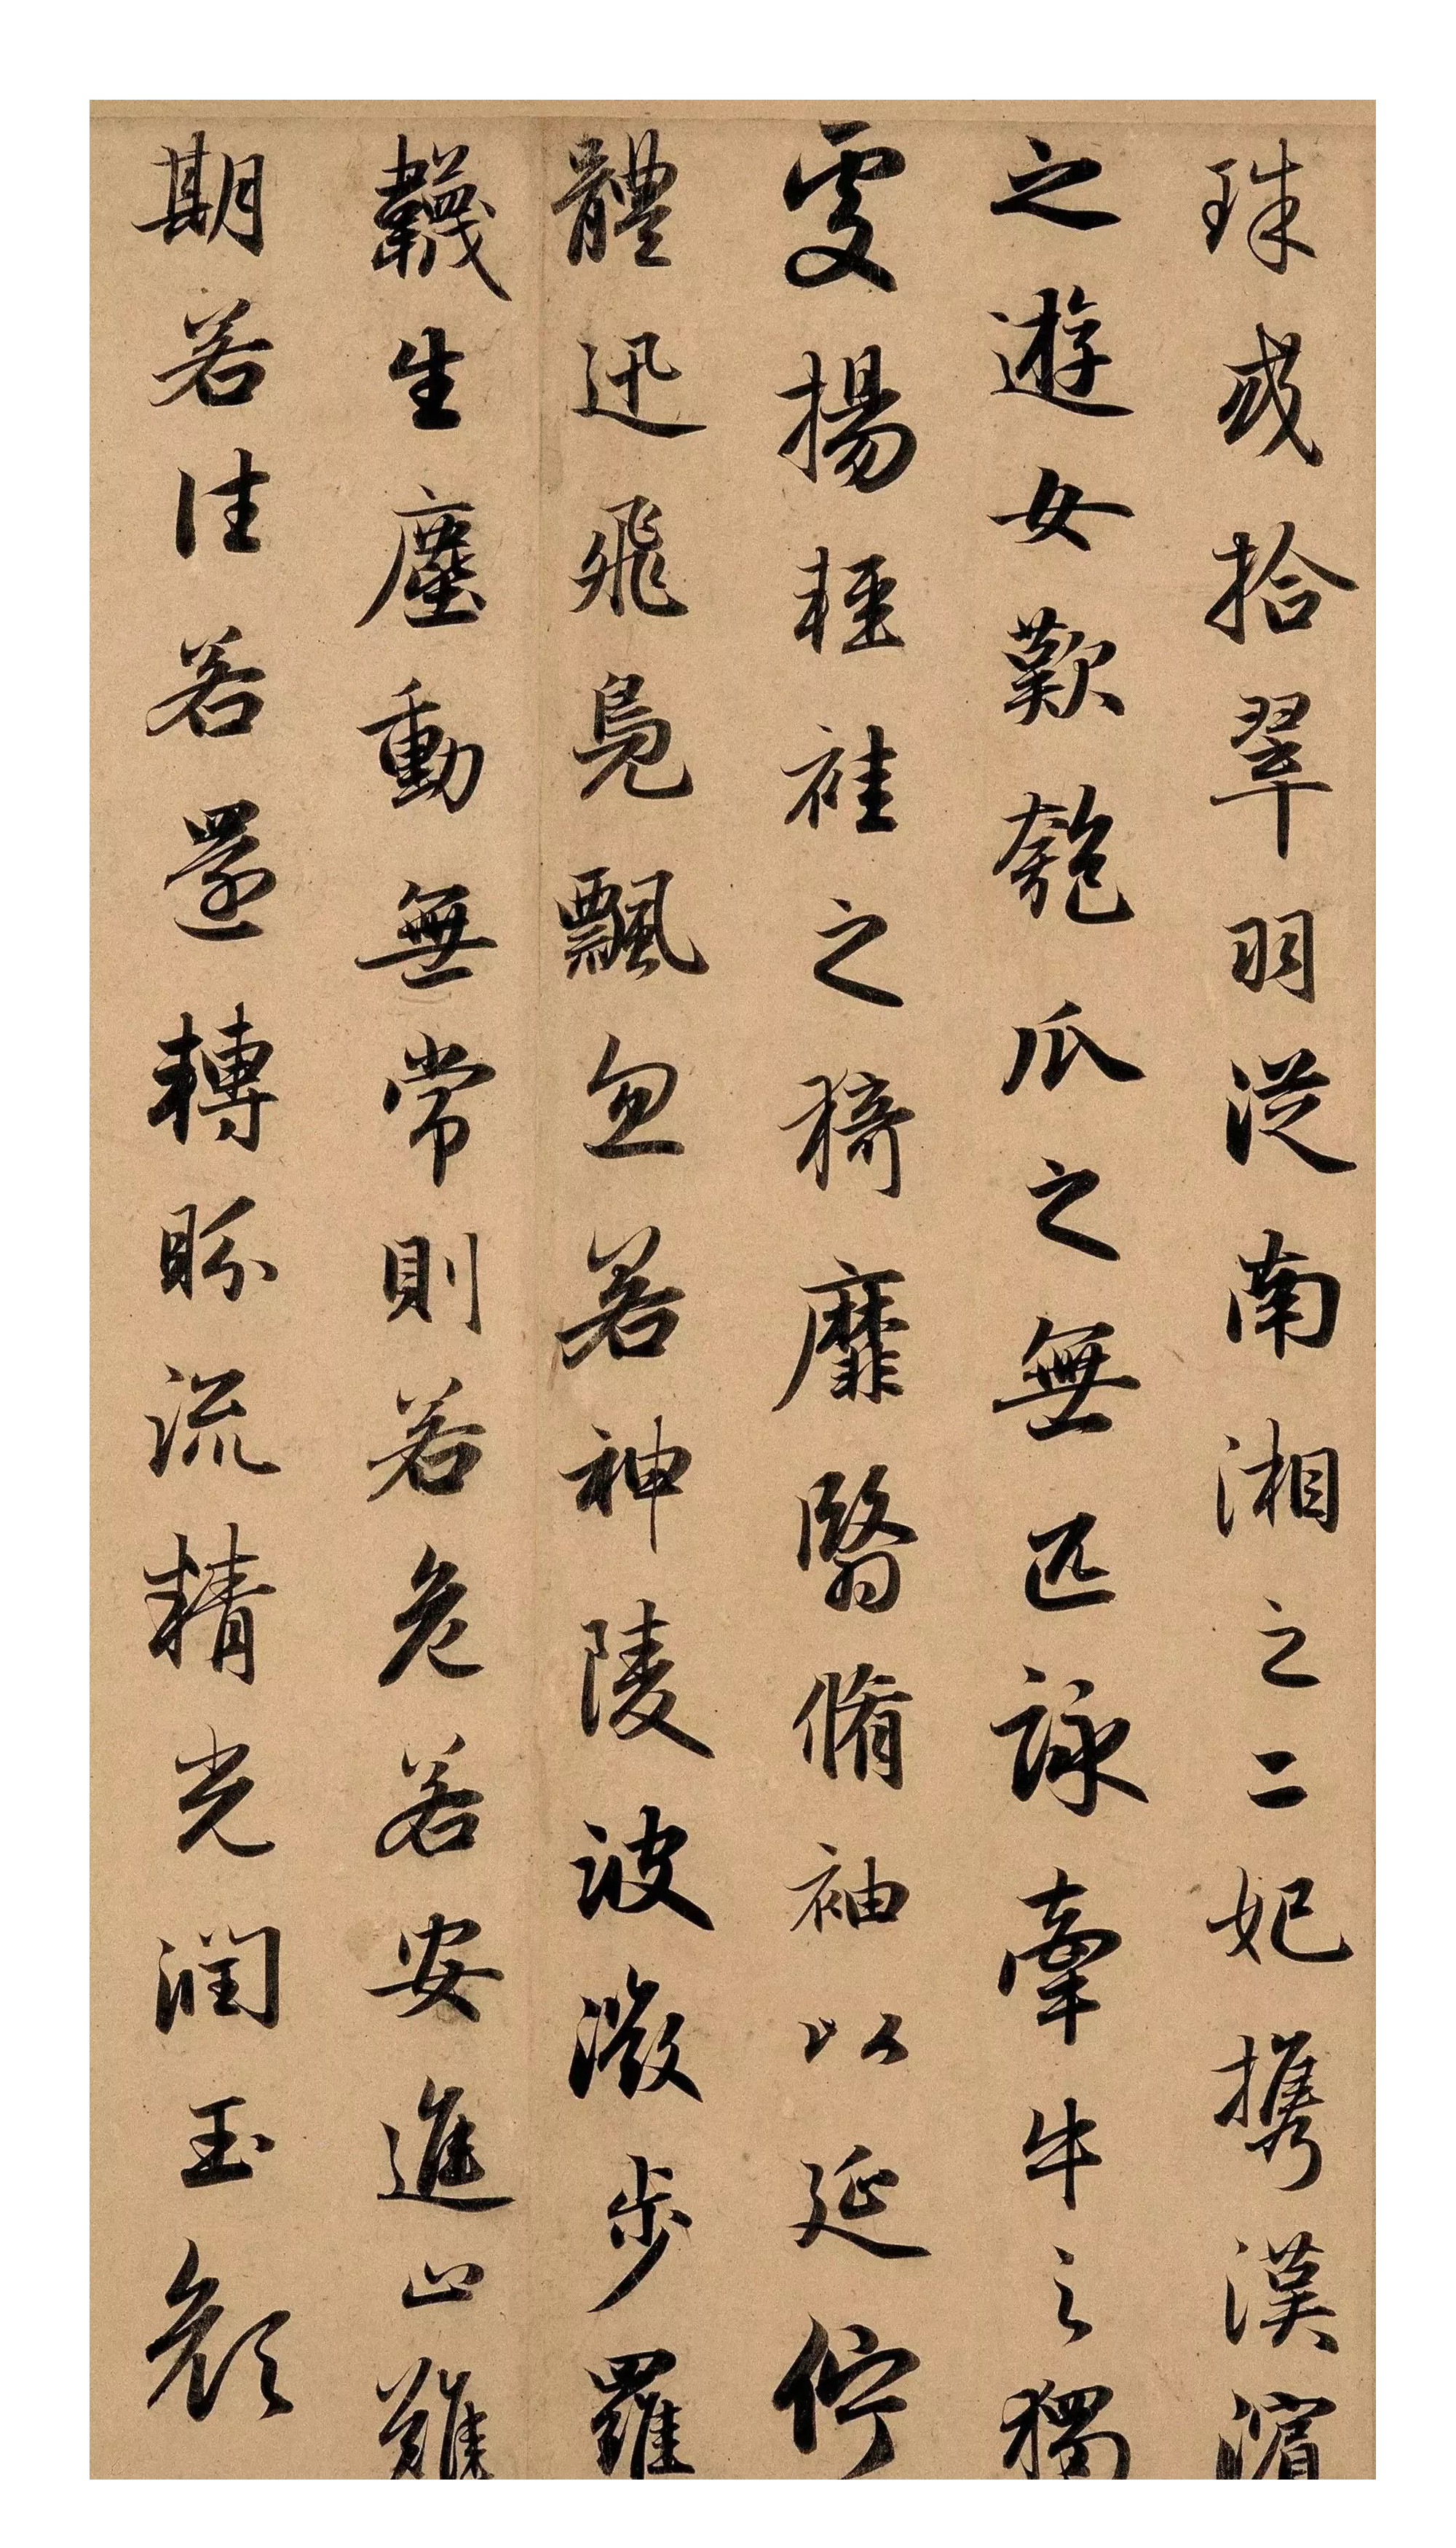 珠或拾翠羽從南湘之二妃攜漢濱
之遊女歎匏瓜之無匹詠牽牛之獨
處揚輕袿之猗靡翳脩袖以延佇
體迅飛鳧飄忽若神陵波微步羅
韈生塵動無常則若危若安進止難
期若往若還轉盼流精光潤玉顏